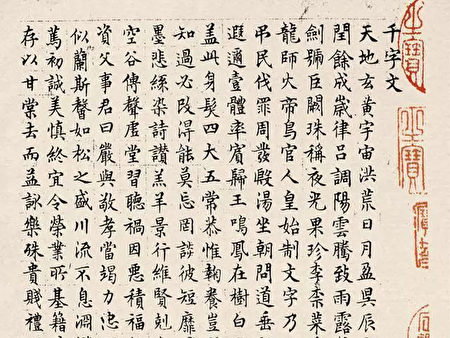 千字文
天地玄黃宇宙洪荒日月盈昃辰
閏餘成歲律呂調陽雲騰致雨露
劍號巨闕珠稱夜光果珍李柰菜
龍師火帝鳥官人皇始制文字乃
弔民伐罪周發殷湯坐朝問道垂
遐邇壹體率賓歸王鳴鳳在樹白
蓋此身髮四大五常恭惟鞠養豈
知過必改得能莫忘罔談彼短靡
墨悲絲染詩讚羔羊景行維賢剋
空谷傳聲虛堂習聽禍因惡積福
資父事君曰嚴與敬孝當竭力忠
似蘭斯馨如松之盛川流不息淵
篤初誠美慎終宜令榮業所基籍
存以甘棠去而益詠樂殊貴賤禮